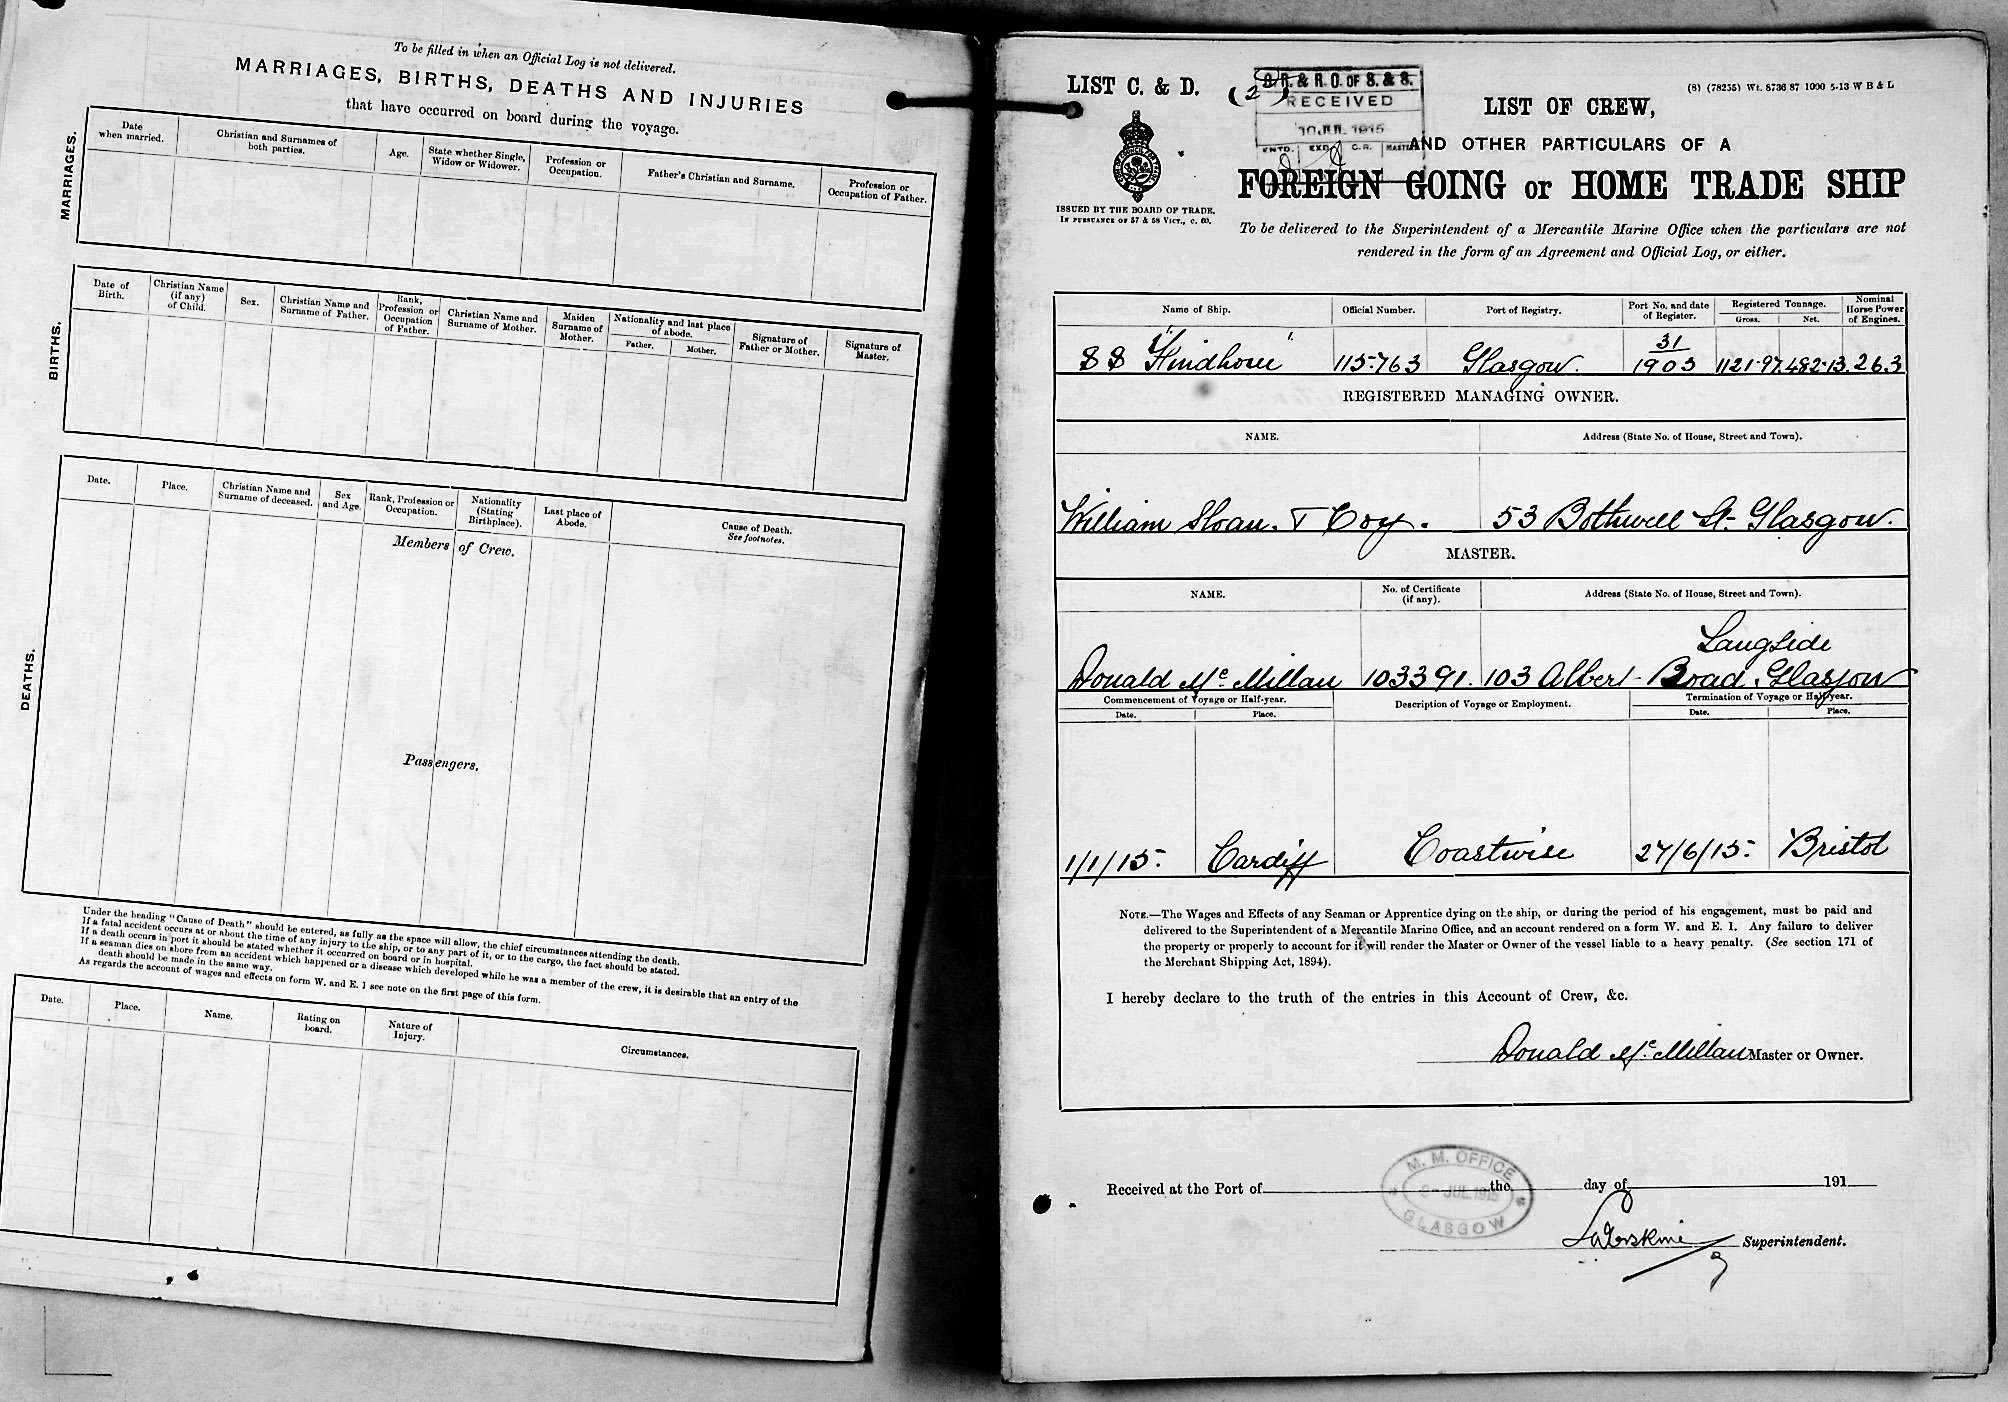 To be filled in when an Official Log is not delivered.
MARRIAGES, BIRTHS, DEATHS AND INJURIES
that have occurred on board during the voyage.
MARRIAGES.
Date when married.
Christian and Surnames of both parties.
Age.
State whether Single, Widow or Widower.
Profession or Occupation.
Father's Christian and Surname.
Profession or Occupation of Father.
BIRTHS.
Date of Birth.
Christian Name (if any) of Child.
Sex.
Christian Name and Surname of Father.
Rank, Profession or Occupation of Father.
Christian Name and Surname of Mother.
Maiden Surname of Mother.
Nationality and last place of abode.
Father.
Mother.
Signature of Father or Mother.
Signature of Master.
DEATHS.
Date.
Place.
Christian Name and Surname of deceased.
Sex and Age.
Rank, Profession or Occupation.
Nationality (Stating Birthplace).
Last place of Abode.
Cause of Death.
See footnotes.
Members of Crew.
Passengers.
Under the heading "Cause of Death" should be entered, as fully as the space will allow, the chief circumstances attending the death.
If a fatal accident occurs at or about the time of any injury to the ship, or to any part of it, or to the cargo, the fact should be stated.
If a death occurs in port it should be stated whether it occurred on board or in hospital.
If a seaman dies on shore from an accident which happened or a disease which developed while he was a member of the crew, it is desirable that an entry of the
death should be made in the same way.
As regards the account of wages and effects on form W. and E. 1 see note on the first page of this form.
Date.
Place.
Name.
Rating on board.
Nature of Injury.
Circumstances.
LIST C. & D.
(2)
G.R. & R.O. OF S. & S.
RECEIVED
10 JUL 1915
ENTD. EXD. C.R. MASTER
(8) (78235) Wt. 8736/87 1000 5-13 W B & L
LIST OF CREW,
AND OTHER PARTICULARS OF A
FOREIGN GOING or HOME TRADE SHIP
ISSUED BY THE BOARD OF TRADE.
IN PURSUANCE OF 57 & 58 VICT., c. 60.
To be delivered to the Superintendent of a Mercantile Marine Office when the particulars are not
rendered in the form of an Agreement and Official Log, or either.
Name of Ship.
Official Number.
Port of Registry.
Port No. and date of Register.
Registered Tonnage.
Gross.
Net.
Nominal Horse Power of Engines.
SS "Findhorn"
115763
Glasgow.
31
1903
1121.97
482.13
263
REGISTERED MANAGING OWNER.
NAME.
Address (State No. of House, Street and Town).
William Sloan & Coy.
53 Bothwell St. Glasgow.
MASTER.
NAME.
No. of Certificate (if any).
Address (State No. of House, Street and Town).
Langside
Donald McMillan
103391.
103 Albert Road Glasgow
Commencement of Voyage or Half-year.
Date.
Place.
Description of Voyage or Employment.
Termination of Voyage or Half-year.
Date.
Place.
1/1/15.
Cardiff
Coastwise
27/6/15.
Bristol
NOTE.—The Wages and Effects of any Seaman or Apprentice dying on the ship, or during the period of his engagement, must be paid and
delivered to the Superintendent of a Mercantile Marine Office, and an account rendered on a form W. and E. 1. Any failure to deliver
the property or properly to account for it will render the Master or Owner of the vessel liable to a heavy penalty. (See section 171 of
the Merchant Shipping Act, 1894).
I hereby declare to the truth of the entries in this Account of Crew, &c.
Donald McMillan Master or Owner.
M. M. OFFICE
JUL 1915
GLASGOW
Received at the Port of the day of 191
Superintendent.